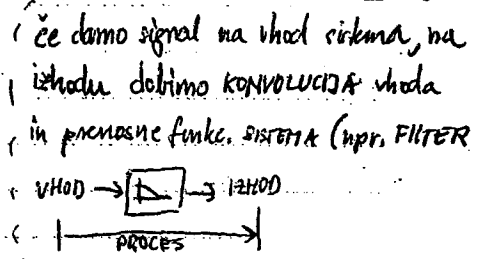 če damo signal na vhod sistema, na
izhodu dobimo KONVOLUCIJA vhoda
in prenosne funkc. SISTEMA (npr. FILTER
VHOD → → IZHOD
PROCES